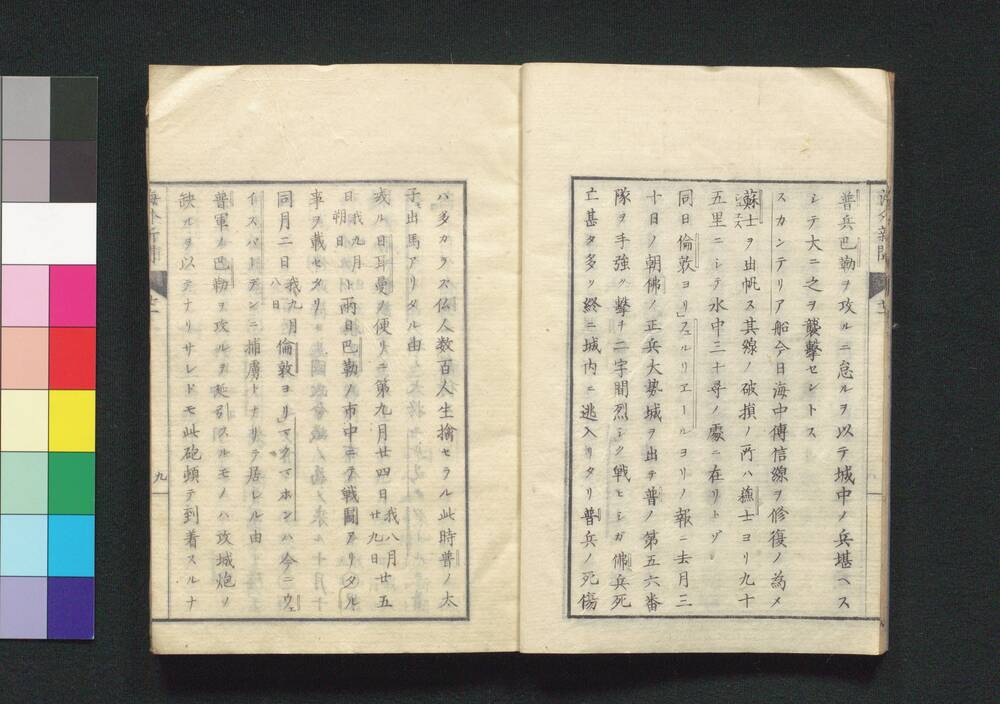 海外新聞
普兵巴勒ヲ攻ルニ怠ルヲ以テ城中ノ兵堪ヘス
シテ大ニ之ヲ襲撃セントス
スカンテリア船今日海中傳信線ヲ修復ノ為メ
蘇士ヲ出帆ス其線ノ破損ノ所ハ蘓士ヨリ九十
スエス
五里ニシテ水中三十尋ノ處ニ在リトゾ
同日倫敦ヨリ」フェルリエールヨリノ報ニ去月三
十日ノ朝佛ノ正兵大勢城ヲ出テ普ノ第五六番
隊ヲ手強ク撃チ二字間烈シク戰ヒシガ佛兵死
亡甚タ多ク終ニ城内ニ逃入リタリ普兵ノ死傷
ハ多カラス仏人数百人生擒セラル此時普ノ太
子出馬アリタル由
或ル日耳曼ノ便リニ第九月廿四日我八月廿九日廿五
日我九月朔日ト両日巴勒ノ市中ニテ戰闘アリタル
事ヲ載セタリ
同月二日我九月八日倫敦ヨリ」マクマホンハ今ニウェ
イスバーデンニ捕虜トナリテ居レル由
普軍ノ巴勒ヲ攻ルヲ延引スルモノハ攻城炮ノ
缺ルヲ以テナリサレドモ此砲頓テ到着スルナ
海外新聞
九